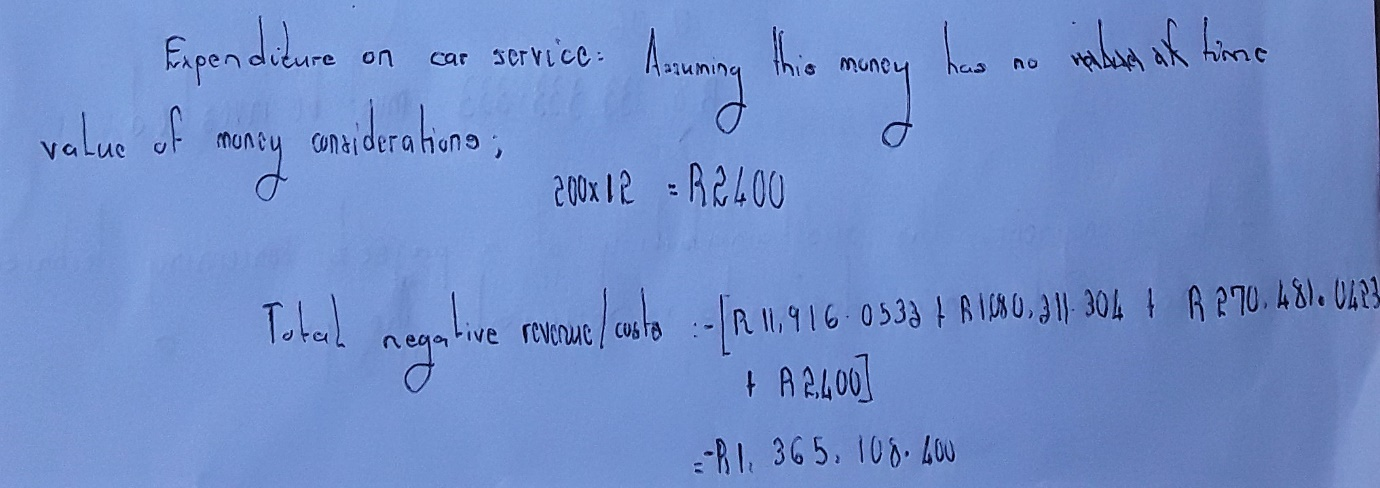 Expenditure on car service: Assuming this money has no time
value of money considerations;
200x12 = R2400
Total negative revenue/costs :-[R 11,916.0533 + R1,080,311.304 + R 270,481.0423
+ R2,400]
=-R1, 365, 108.400